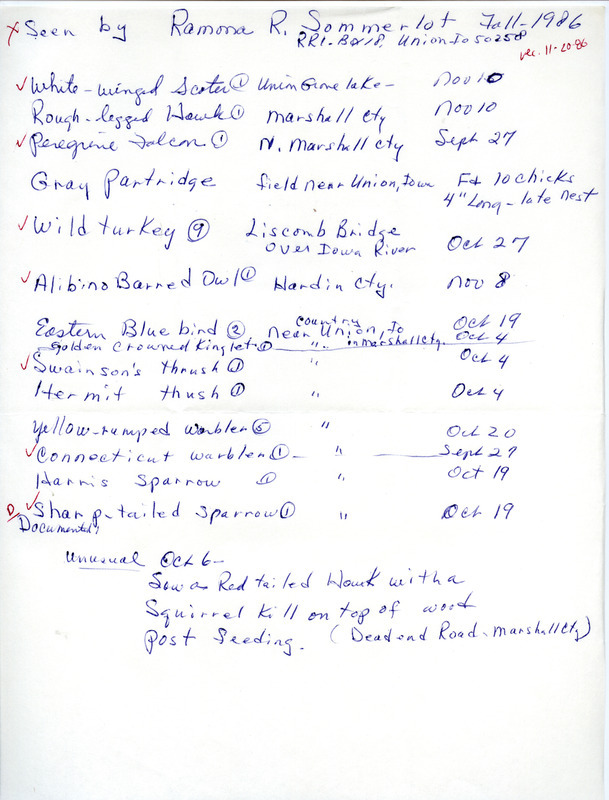 x Seen by Ramona R. Sommerlot Fall-1986
RR1-Box18, Union Io 50258
rec. 11-20-86
✓ White-winged Scoter ① Union Grove lake- Nov 10
Rough-legged Hawk ① Marshall Cty Nov 10
✓ Peregrine Falcon ① N. Marshall Cty Sept 27
Gray Partridge field near Union, Iowa F& 10 chicks
4" Long-late nest
✓ Wild turkey ⑨ Liscomb Bridge
over Iowa River Oct 27
✓ Alibino Barred Owl ① Hardin Cty. Nov 8
Eastern Blue bird ② near country Union, Io Oct 19
Golden Crowned Kinglet ① " in Marshall Cty. Oct 4
✓ Swainson's thrush ① " Oct 4
Hermit thush ① " Oct 4
Yellow-rumped warbler ⑤ " Oct 20
✓ Connecticut warbler ① - " Sept 27
Harris Sparrow ① " Oct 19
D ✓ Sharp-tailed Sparrow ① " Oct 19
Documented!
Unusual Oct 6-
Saw a Red tailed Hawk with a
Squirrel Kill on top of wood
post feeding. (Deadend Road-Marshall Cty)